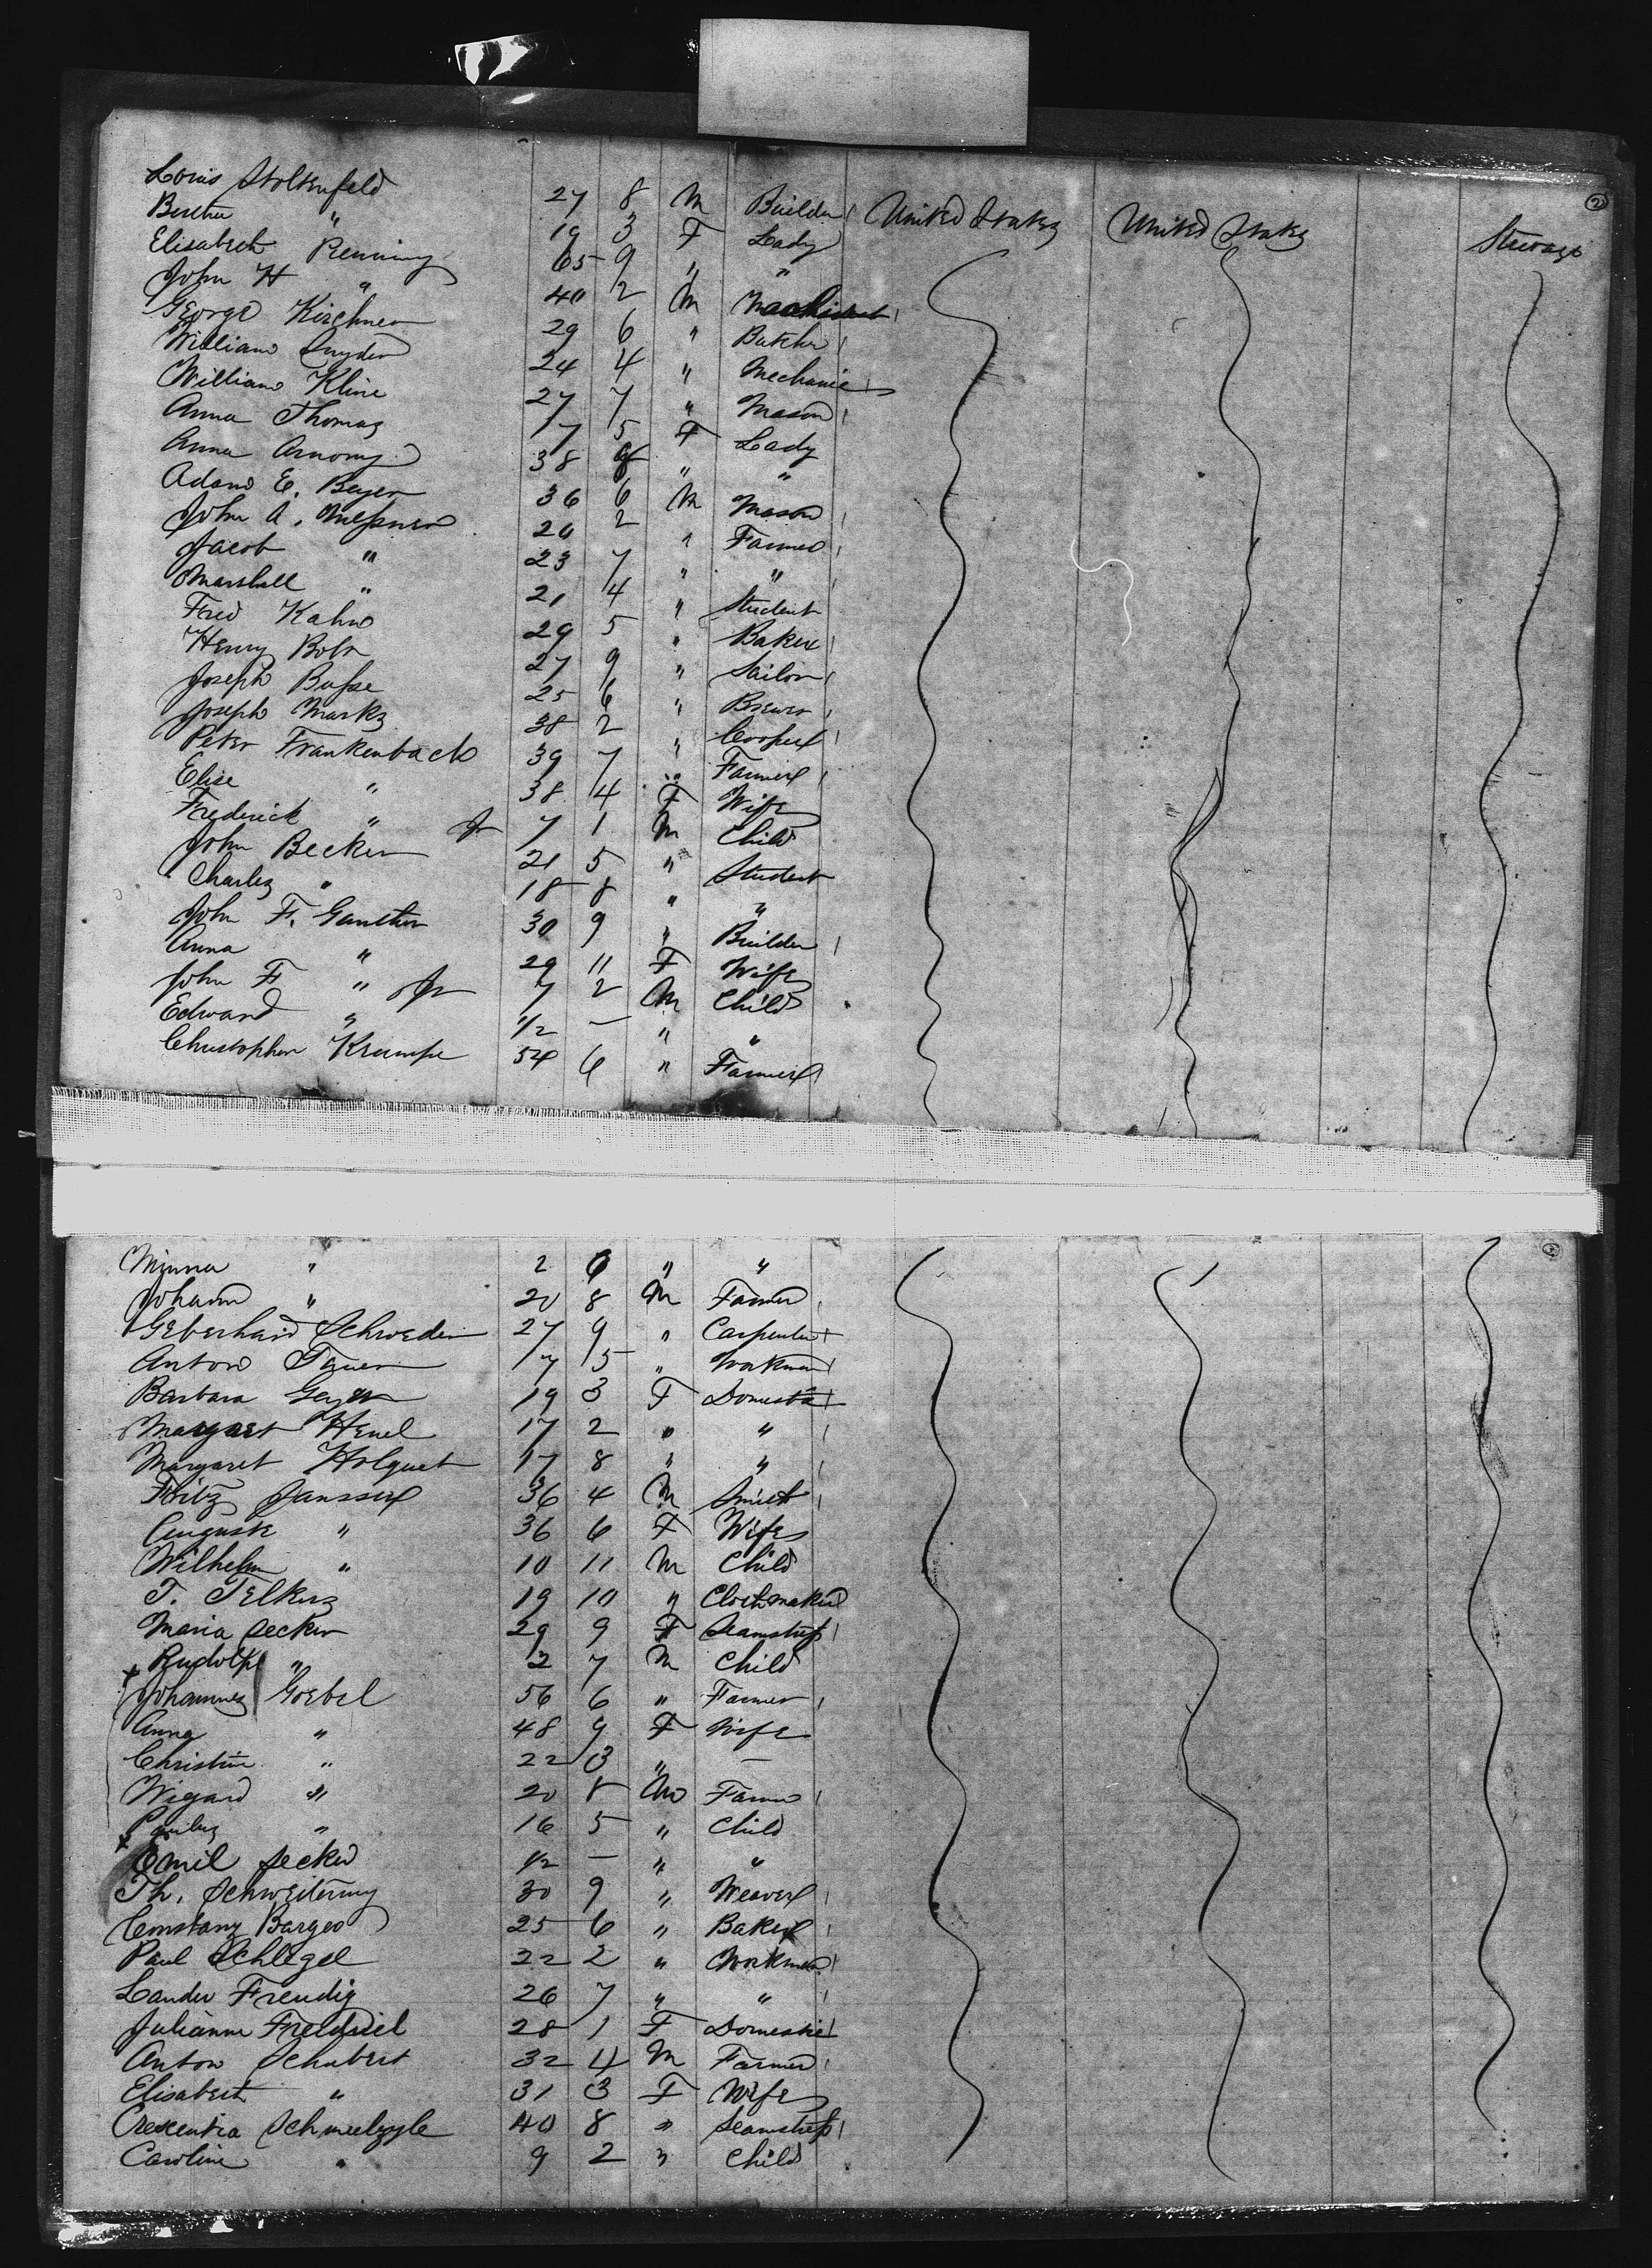 2
Louis Stoltenfeld 27 8 M Builder United States United States Steerage
Bertha " 19 3 F Lady
Elisabeth Renning 65 9 " "
John H " 40 2 M Machinest
George Kirchner 29 6 " Butcher
William Snyder 24 4 " Mechanic
William Kline 27 7 " Mason
Anna Thomas 17 5 F Lady
Anna 38 " "
Adam E. Beyer 36 6 M Mason
John A. Meßner 2 " Farmer
Jacob " 23 7 " "
Marshall " 21 4 " Student
Fred Kahn 29 5 " Baker
Henry 27 9 " Sailor
Joseph Buße 25 6 " Brewer
Joseph Marks 38 2 " Cooper
Peter Frankenbach 39 7 " Farmer
Elise " 38 4 F Wife
Frederick " Jr 7 1 M Child
John Becker 21 5 " Student
Charles " 18 8 " "
John F. Gunther 30 9 " Builder
Anna " 29 11 F Wife
John F " Jr 7 2 M Child
Edward " 1/2 — " "
Christopher Krumpe 54 6 " Farmer
Minna " 2 6 " "
Johann " 20 8 M Farmer
Geberhard Schroeder 27 9 " Carpenter
Anton 17 5 " Workman
Barbara Geyer 19 3 F Domestic
Margaret Henel 17 2 " "
Margaret Holquet 17 8 " "
Fritz Janssen 36 4 M Smith
Auguste " 36 6 F Wife
Wilhelm " 10 11 M Child
T. Telkers 19 10 " Clockmaker
Maria Decker 29 9 F Seamstreß
Rudolph " 2 7 M Child
Johannes Goebel 56 6 " Farmer
Anna " 48 9 F Wife
Christine " 22 3 " —
Wigard " 20 8 M Farmer
" 16 5 " Child
Emil Decker 1/2 — " "
Th. Schweitering 30 9 " Weaver
Constanz Barger 25 6 " Baker
Paul Schlegel 22 2 " Workman
Lander Freudig 26 7 " "
Julianne 28 1 F Domestic
Anton Schubert 32 4 M Farmer
Elisabeth " 31 3 F Wife
Crescentia Schmelzgle 40 8 " Seamstreß
Caroline " 9 2 " Child